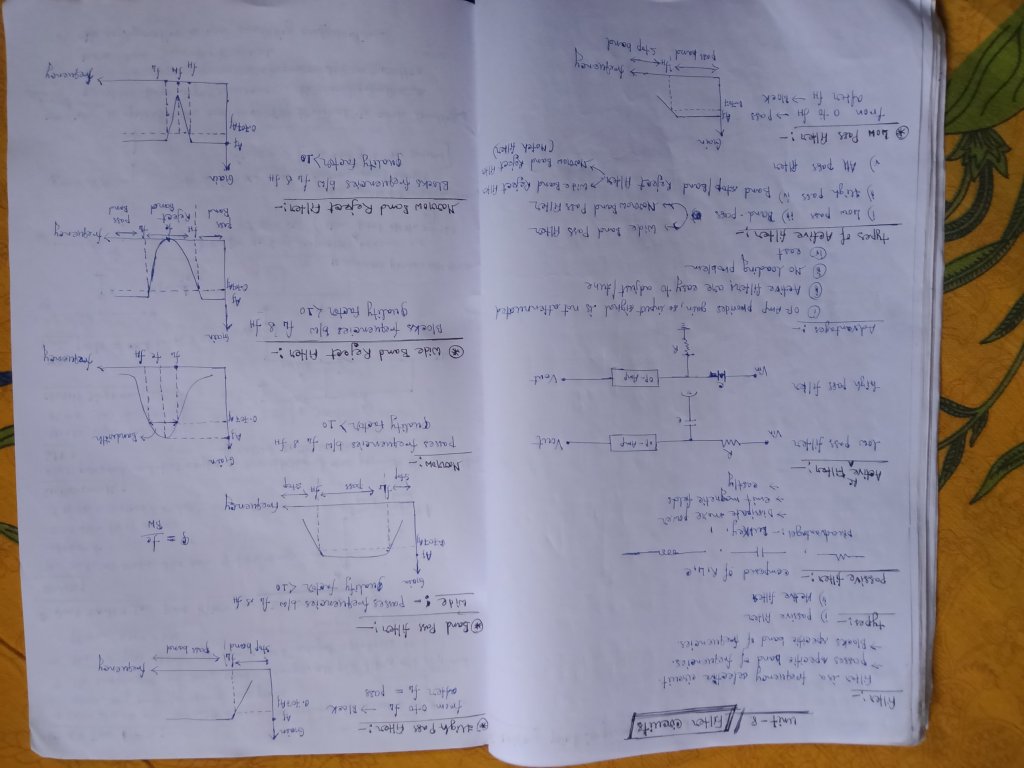 Unit-2 // Filter Circuits
Filter :-
Filter is a frequency selective circuit
→ passes specific band of frequencies
→ Blocks specific band of frequencies
types :- i) passive filter
ii) Active filter
passive filter :- compound of R, L, C
Disadvantages :- Bulkey,
→ Dissipate more power
→ emit magnetic fields
→ costly
Active Filter :-
low pass filter
Vin
R
C
OP-Amp
Vout
high pass filter
Vin
R
OP-Amp
Vout
Advantages :-
i) OP Amp provides gain, so input signal is not attenuated
ii) Active filters are easy to adjust / tune
iii) No loading problem
iv) cost
types of Active filter :-
i) Low pass ii) Band-pass → Wide Band Pass filter
→ Narrow Band Pass Filter
iii) High pass iv) Band stop/Band Reject Filter → Wide Band Reject filter
→ Narrow Band Reject filter
(Notch filter)
v) All pass filter
* Low Pass Filter :-
from 0 to fH → pass
after fH → Block
Gain
Af
0.707Af
fH
frequency
pass band
Stop band
* High Pass Filter :-
from 0 to fL → Block
after fL = pass
Gain
Af
0.707Af
fL
frequency
Stop band
pass band
* Band Pass filter :-
Wide :- passes frequencies b/w fL & fH
Quality factor < 10
Gain
Af
0.707Af
fL
fH
frequency
Stop
pass
Stop
Q = fc/BW
Narrow :-
passes frequencies b/w fL & fH
Quality factor > 10
Gain
Af
0.707Af
Bandwidth
fL fc fH
frequency
* Wide Band Reject Filter :-
Blocks frequencies b/w fL & fH
Quality factor < 10
Gain
Af
0.707Af
frequency
pass Band
Reject Band
pass Band
Narrow Band Reject Filter :-
Blocks frequencies b/w fL & fH
Quality factor > 10
Gain
Af
0.707Af
fH fN fL
frequency